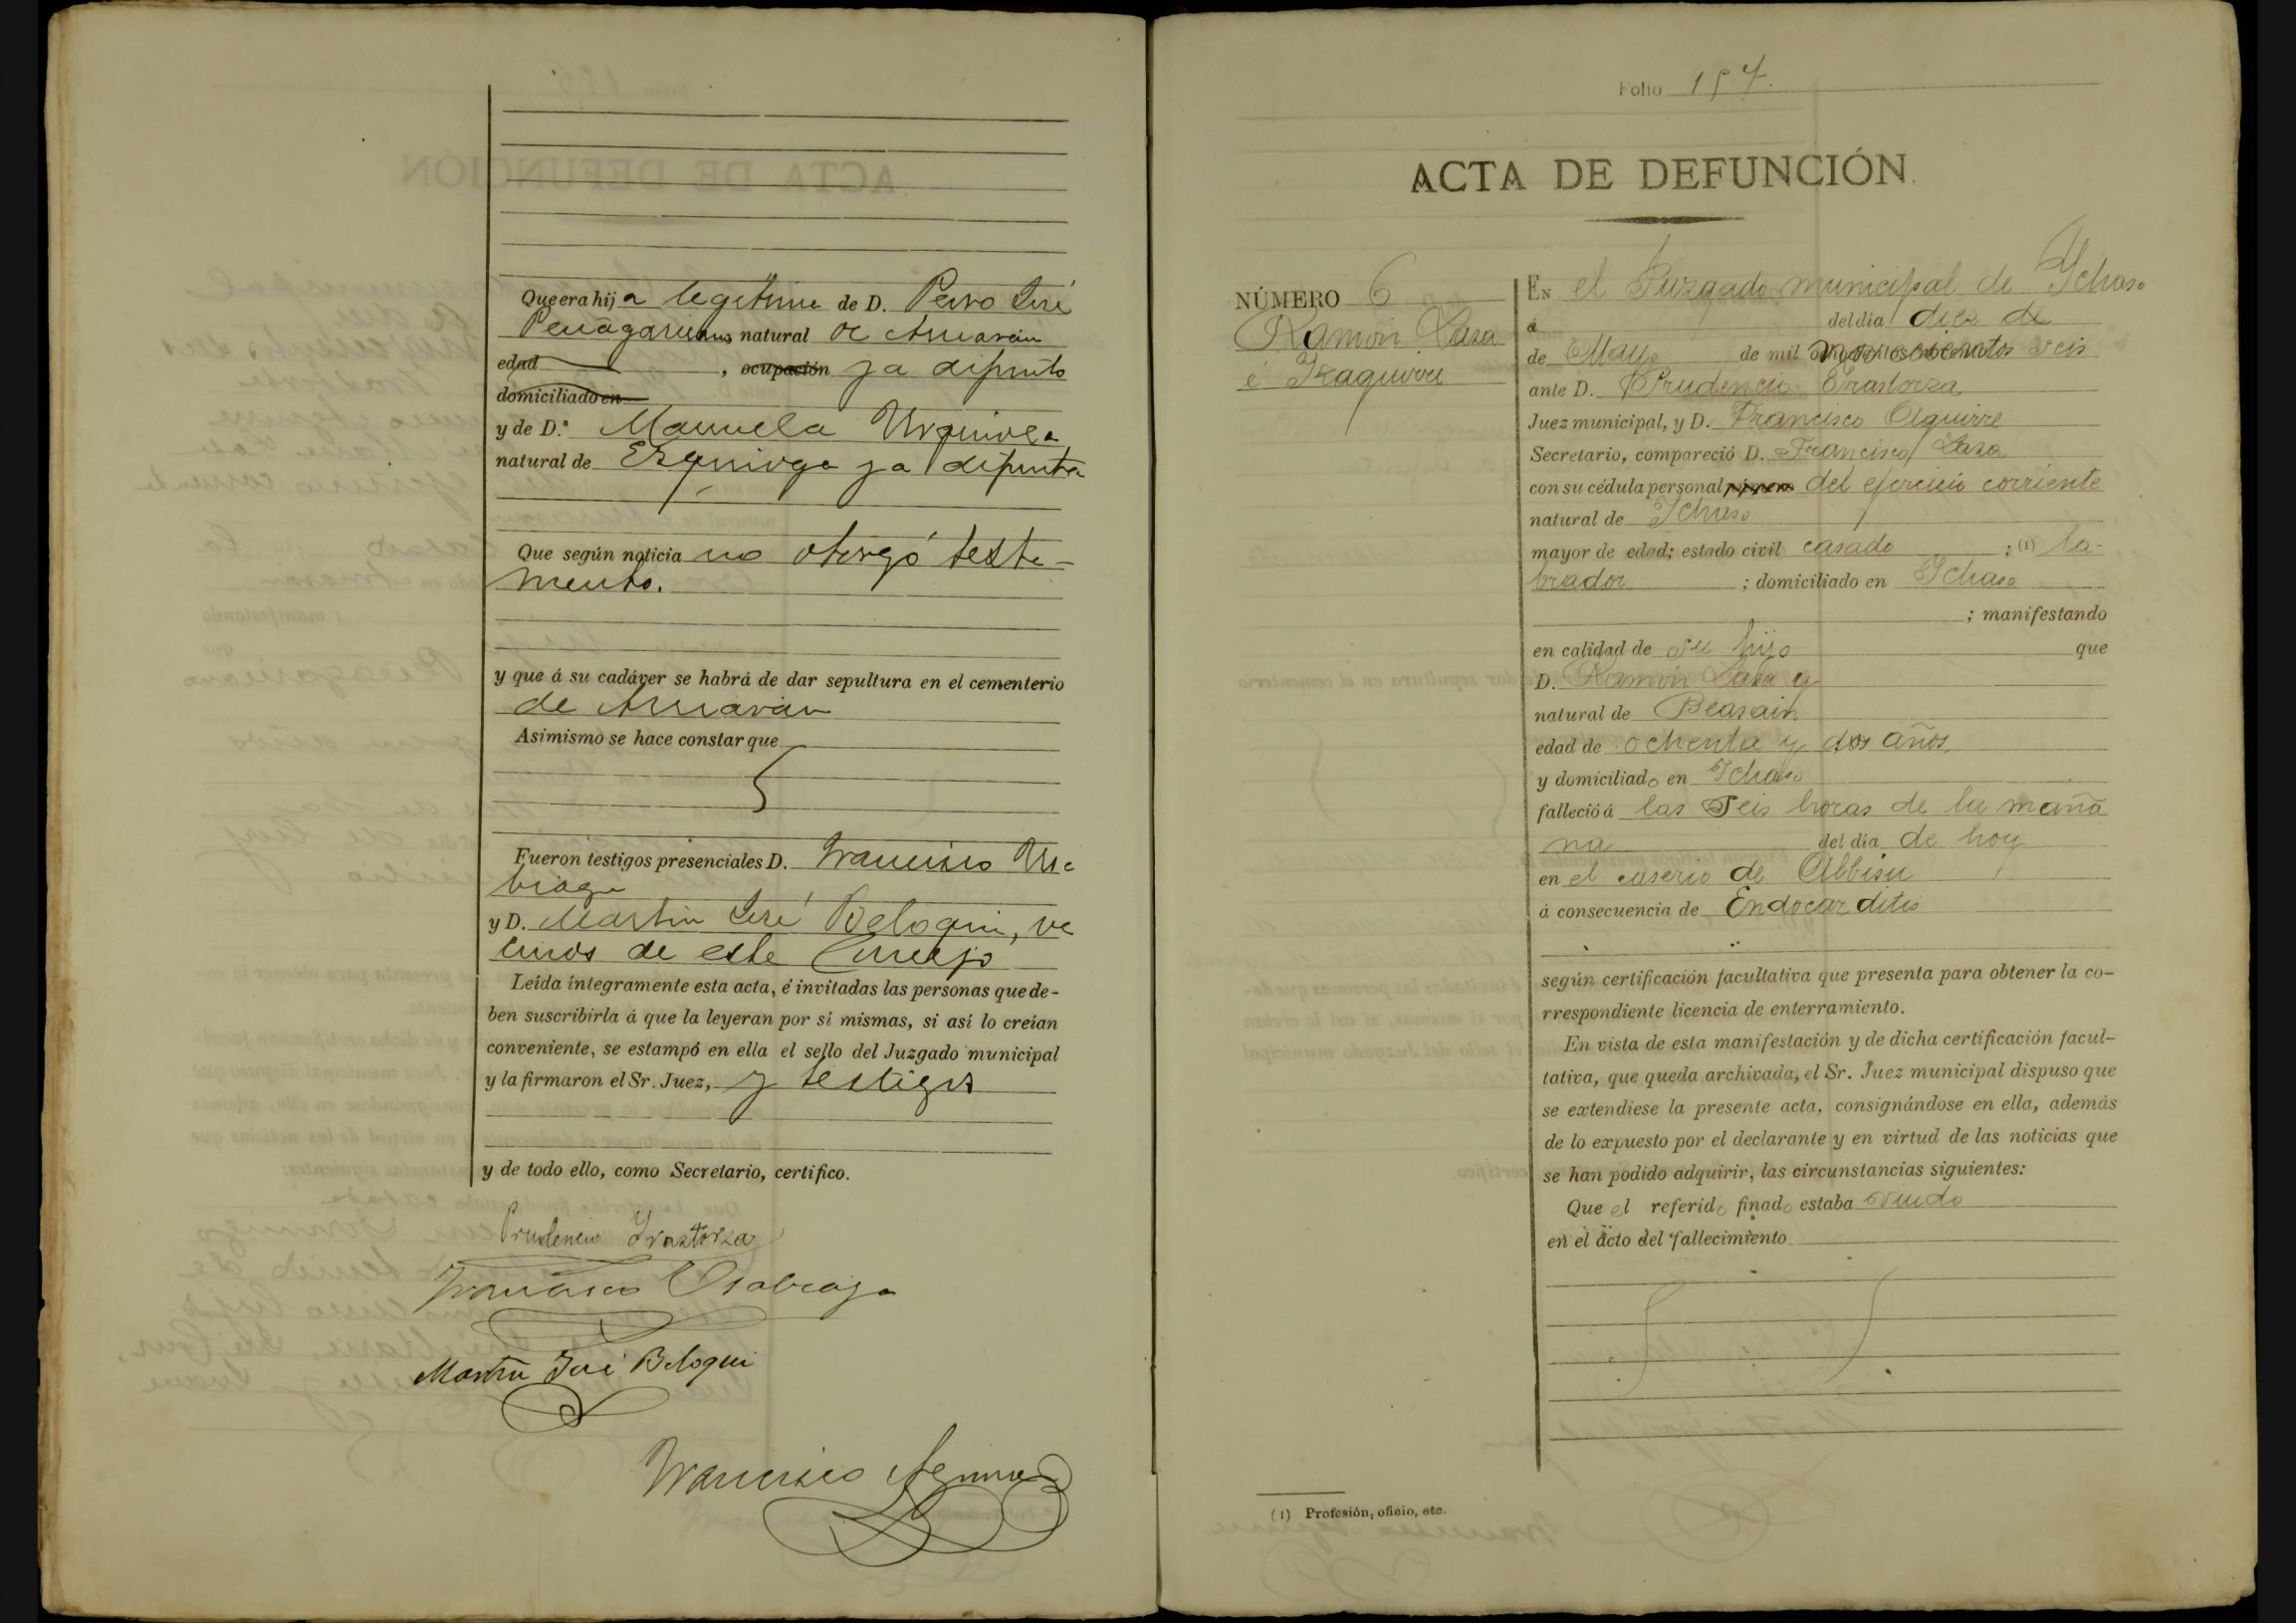 Que era hija legitima de D. Pedro José
Penagaricano natural de Arriarán
edad , ocupación ya difunto
domiciliado en
y de D.ª Manuela Urquiola
natural de Ezquioga ya difunta
Que según noticia no otorgó testa-
mento.
y que á su cadáver se habrá de dar sepultura en el cementerio
de Arriarán
Asimismo se hace constar que
Fueron testigos presenciales D. Francisco
y D. Martin José Beloqui, ve
cinos de este Concejo
Leída íntegramente esta acta, é invitadas las personas que de-
ben suscribirla á que la leyeran por sí mismas, si así lo creían
conveniente, se estampó en ella el sello del Juzgado municipal
y la firmaron el Sr. Juez, y testigos
y de todo ello, como Secretario, certifico.
Prudencio Yraztorza
Francisco
Martin José Beloqui
Francisco Aguirre
Folio 157.
ACTA DE DEFUNCIÓN.
NÚMERO 6
Ramon Lasa
é Yzaguirre
En el Juzgado municipal de Ychaso
á del día diez de
de Mayo de mil novecientos seis
ante D. Prudencio Erastorza
Juez municipal, y D. Francisco Aguirre
Secretario, compareció D. Francisco Lasa
con su cédula personal número del ejercicio corriente
natural de Ychaso
mayor de edad; estado civil casado ; (1) la-
brador ; domiciliado en Ychaso
; manifestando
en calidad de su hijo que
D. Ramon Lasa y
natural de Beasain
edad de ochenta y dos años
y domiciliado en Ychaso
falleció á las seis horas de la maña
na del día de hoy
en el caserio de Albisu
á consecuencia de Endocarditis
según certificación facultativa que presenta para obtener la co-
rrespondiente licencia de enterramiento.
En vista de esta manifestación y de dicha certificación facul-
tativa, que queda archivada, el Sr. Juez municipal dispuso que
se extendiese la presente acta, consignándose en ella, además
de lo expuesto por el declarante y en virtud de las noticias que
se han podido adquirir, las circunstancias siguientes:
Que el referido finado estaba viudo
en el acto del fallecimiento
(1) Profesión, oficio, etc.